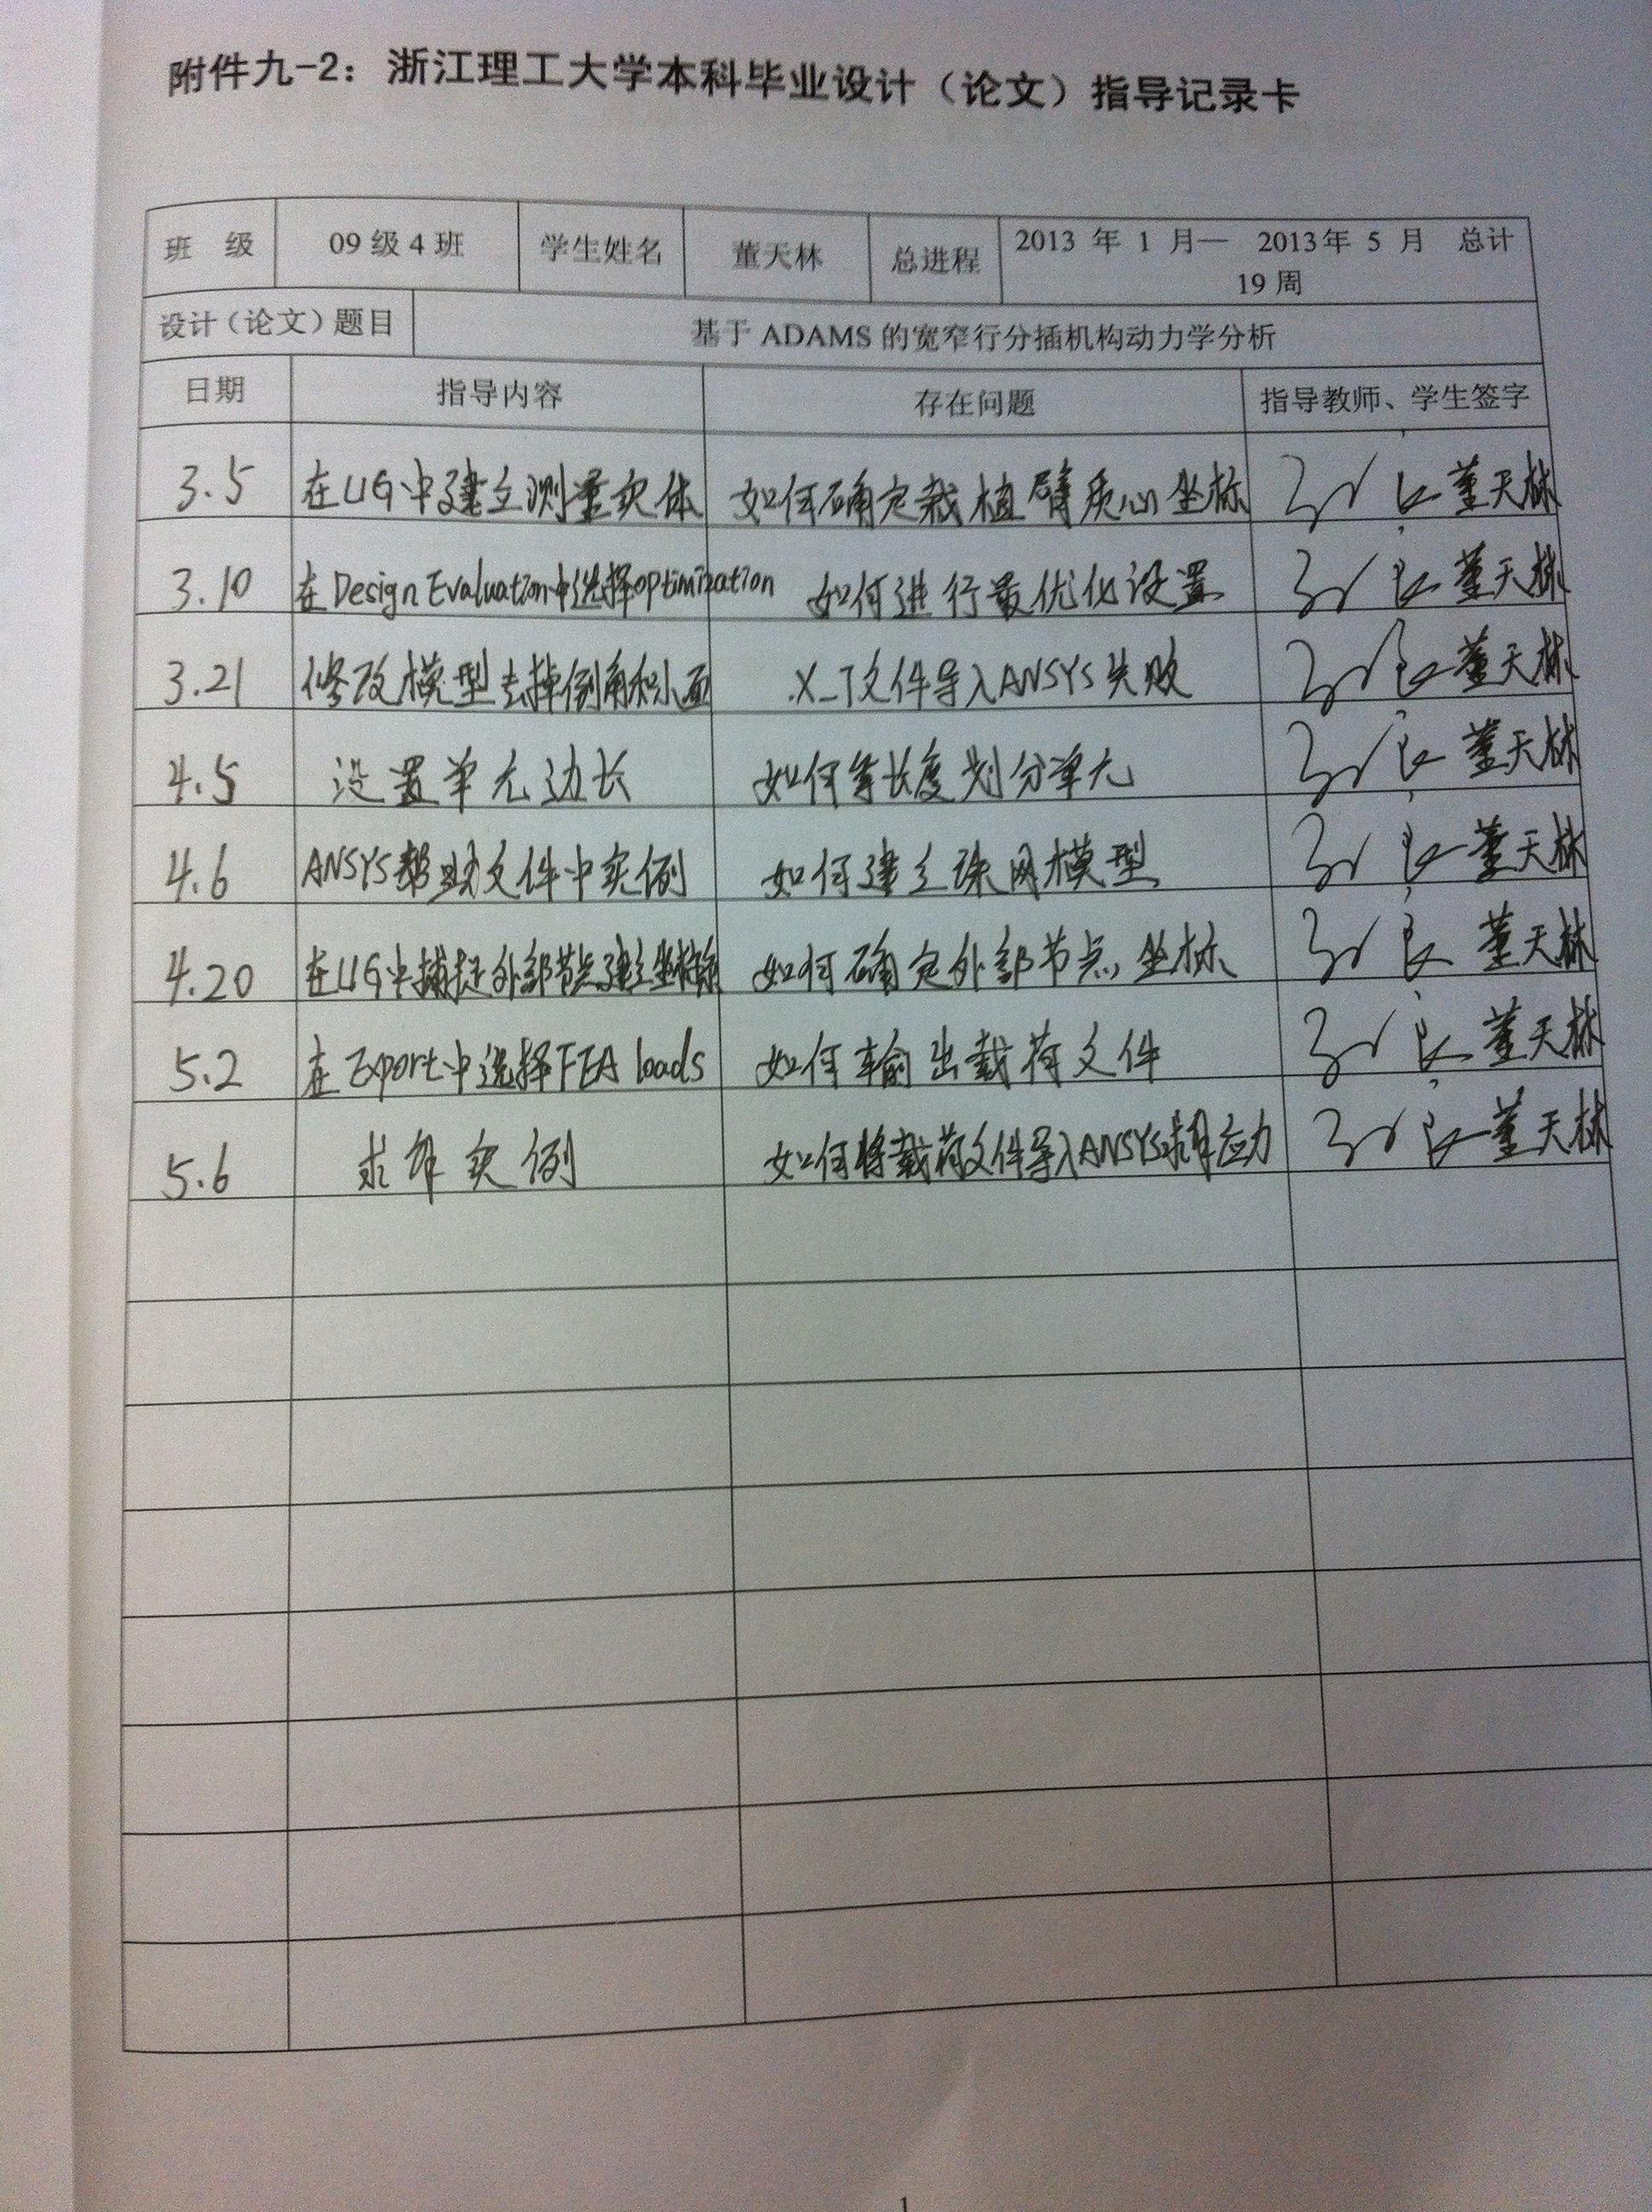 附件九-2：浙江理工大学本科毕业设计（论文）指导记录卡
班 级 09级4班 学生姓名 董天林 总进程 2013 年 1 月— 2013年 5 月 总计
19周
设计（论文）题目 基于 ADAMS 的宽窄行分插机构动力学分析
日期 指导内容 存在问题 指导教师、学生签字
3.5 在UG中建立测量实体 如何确定栽植臂质心坐标 董天林
3.10 在Design Evaluation中选择optimization 如何进行最优化设置 董天林
3.21 修改模型去掉倒角和小面 .X_T文件导入ANSYS失败 董天林
4.5 设置单元边长 如何等长度划分单元 董天林
4.6 ANSYS帮助文件中实例 如何建立珠网模型 董天林
4.20 在UG中捕捉外部节点建立坐标系 如何确定外部节点坐标 董天林
5.2 在Export中选择FEA loads 如何输出载荷文件 董天林
5.6 求解实例 如何将载荷文件导入ANSYS求解应力 董天林
1